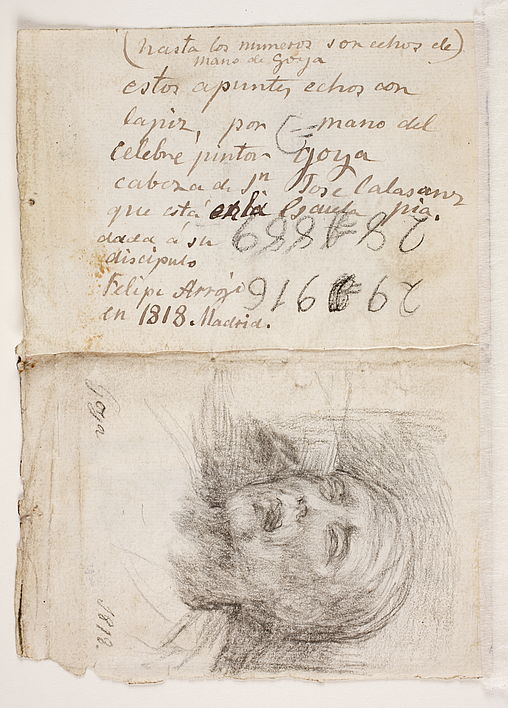 (hasta los numeros son echos de)
mano de Goya
estos apuntes echos con
lapiz, por mano del
celebre pintor Goya
cabeza de Sn José Calasanz
que está en la Escuela pia.
dada á su
discipulo
Felipe Arroyo
en 1818. Madrid.
Goya
1818.